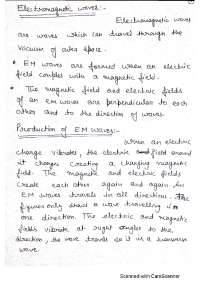 Electromagnetic waves:-
Electromagnetic waves
are waves which can travel through the
Vacuum of outer space.
* EM waves are formed when an electric
field couples with a magnetic field.
* The magnetic field and electric fields
of an em wave are perpendicular to each
other and to the direction of waves.
Production of EM waves:-
When an electric
charge vibrates, the electric field around
it changes creating a changing magnetic
field. The magnetic and electric fields
create each other again and again
EM waves travels in all directions. The
figures only shows a wave travelling in
one direction. The electric and magnetic
fields vibrate at right angles to the
direction, the wave travels so it is a transverse
wave.
Scanned with CamScanner